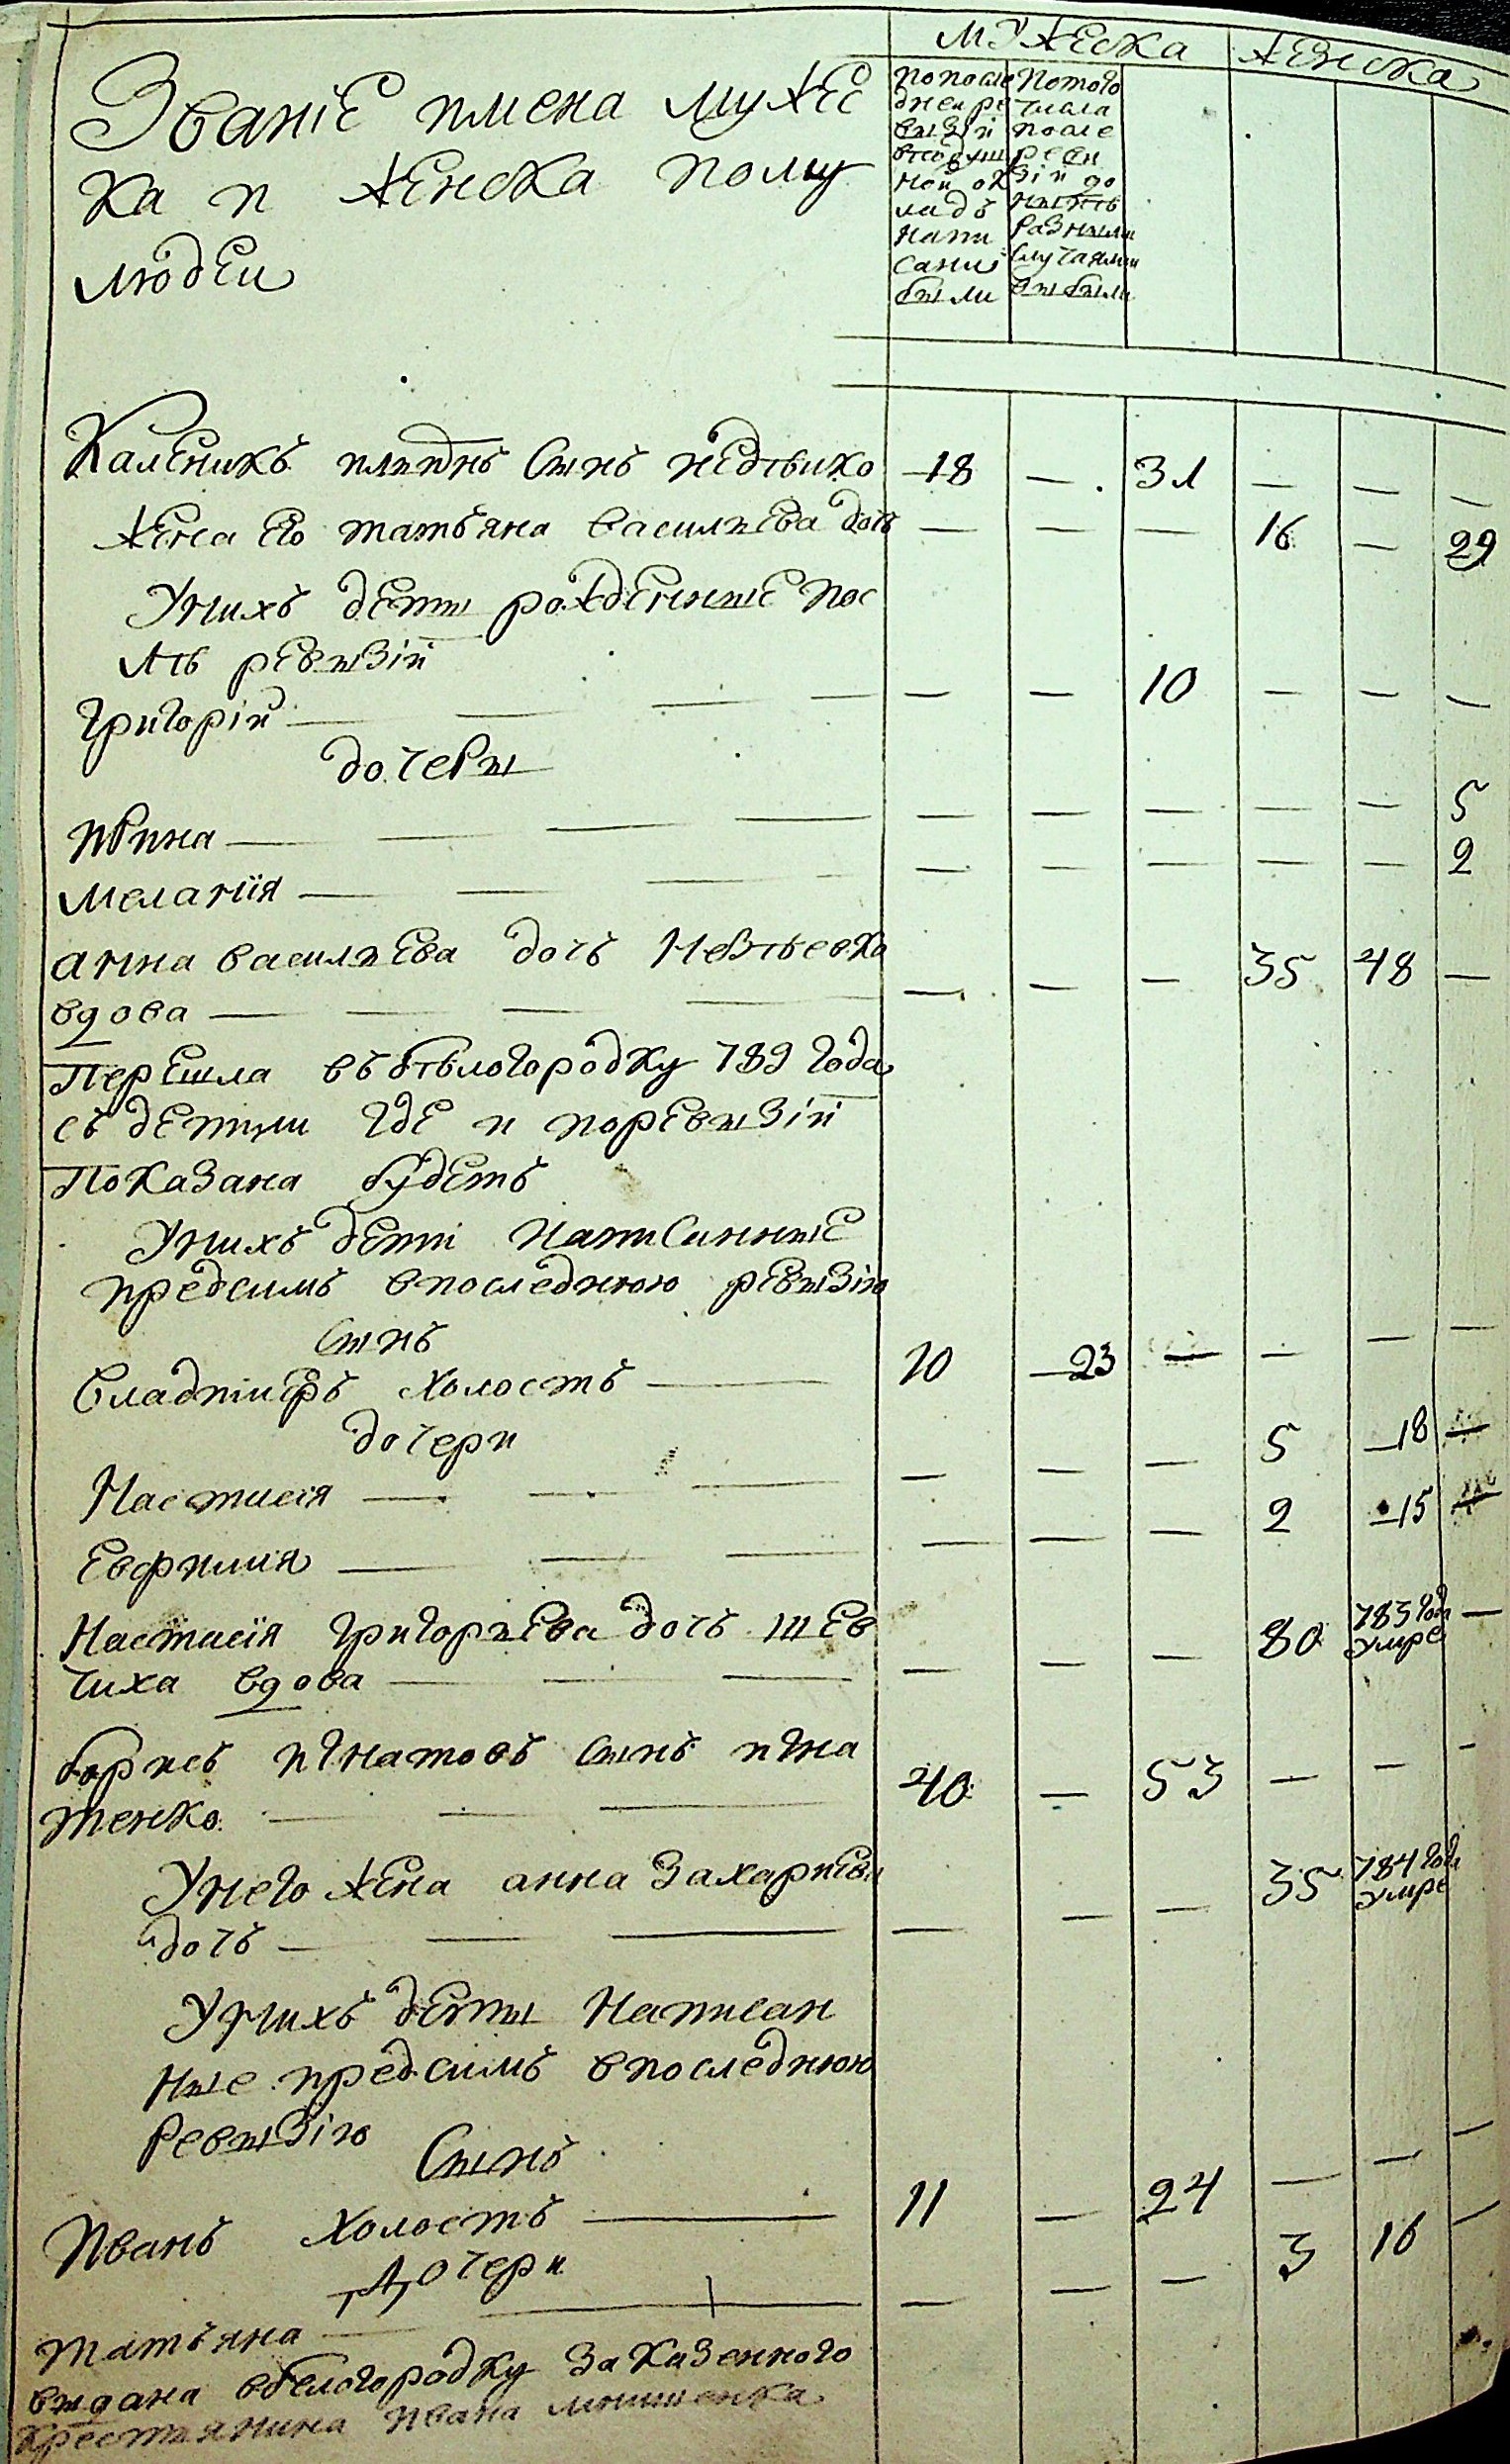 МУЖЕСКА ЖЕНСКА
Званіе имена мужес
ка и женска полу
людеи
По после
днеи ре
визіи
въ поду
ной ок
ладъ
напи
саны
были
По того
числа
после
реви
зіи до
нынѣ
разными
случаями
выбыли
Каленикъ сынъ недѣлко — 18 — — 31 — — —
Жена его татьяна василиева дочь — — — 16 — 29
Унихъ деты рожденные пос
лѣ ревизіи
Григоріи — — — 10 — — —
дочеры
ирина — — — — — — 5
меланія — — — — — — 2
анна василиева дочь
вдова — — — 35 48 —
Перешла въ бѣлогородку 789 года
съ детми где и поревизіи
показана будетъ
Унихъ дети написанные
предсимъ впоследнюю ревизію
сынъ
владимиръ холостъ — 10 — 23 — — — —
дочери
Настасія — — — 5 — 18 —
Евфимия — — — 2 — 15 —
Настасія григориева дочь шев
чиха вдова — — — 80 783 года умре —
борисъ игнатовъ сынъ игна
тенко — 40 — 53 — — —
Унего жена анна захариева
дочь — — — 35 784 года умре
Унихъ деты написан
ные предсимъ впоследнюю
ревизію
Сынъ
иванъ холостъ — 11 — 24 — — —
Дочери
татьяна — — — 3 16 —
выдана вбелогородку за казенного
крестянина ивана